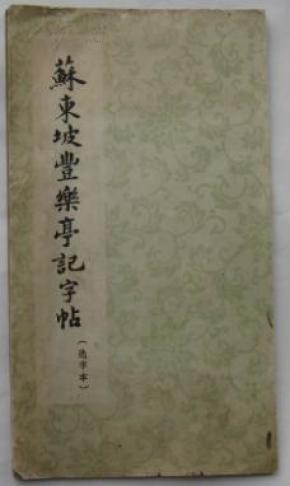 蘇東坡豐樂亭記字帖
（选字本）